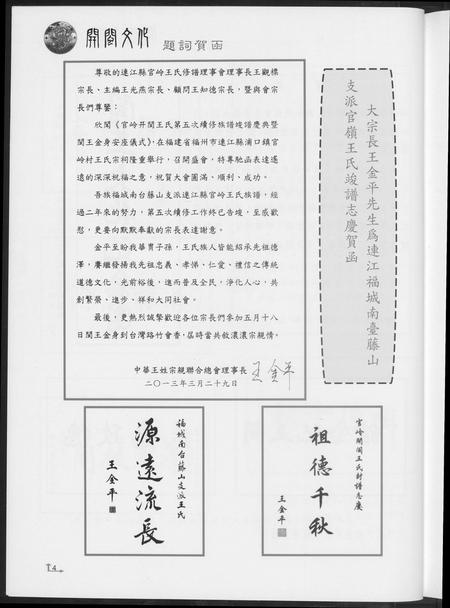 開閩文化 題詞賀函
大宗長王金平先生為連江福城南臺藤山
支派官嶺王氏竣譜志慶賀函
尊敬的連江縣官岭王氏修譜理事會理事長王觀標
宗長、主編王光燕宗長、顧問王知德宗長，暨與會宗
長們尊鑒：
欣聞《官岭開閩王氏第五次續修族譜竣譜慶典暨
閩王金身安座儀式》，在福建省福州市連江縣浦口鎮官
岭村王氏宗祠隆重舉行，召開盛會，特專馳函表達遙
遠的深深祝福之意，祝賀大會圓滿、順利、成功。
吾族福城南台藤山支派連江縣官岭王氏族譜，經
過二年來的努力，第五次續修工作終已告竣，至感歡
慰，更要向默默奉獻的宗長表達謝意。
金平至盼我華胄子孫，王氏族人皆能紹承先祖德
澤，賡繼發揚我先祖忠義、孝悌、仁愛、禮信之傳統
道德文化，光前裕後，進而普及全民，淨化人心，共
創繁榮、進步、祥和大同社會。
最後，更熱烈誠摯歡迎各位宗長們參加五月十八
日閩王金身到台灣路竹會香，屆時當共敘濃濃宗親情。
中華王姓宗親聯合總會理事長 王金平
二〇一三年三月二十九日
官岭開閩王氏封譜志慶
祖德千秋
王金平
福城南台藤山支派王氏
源遠流長
王金平
14